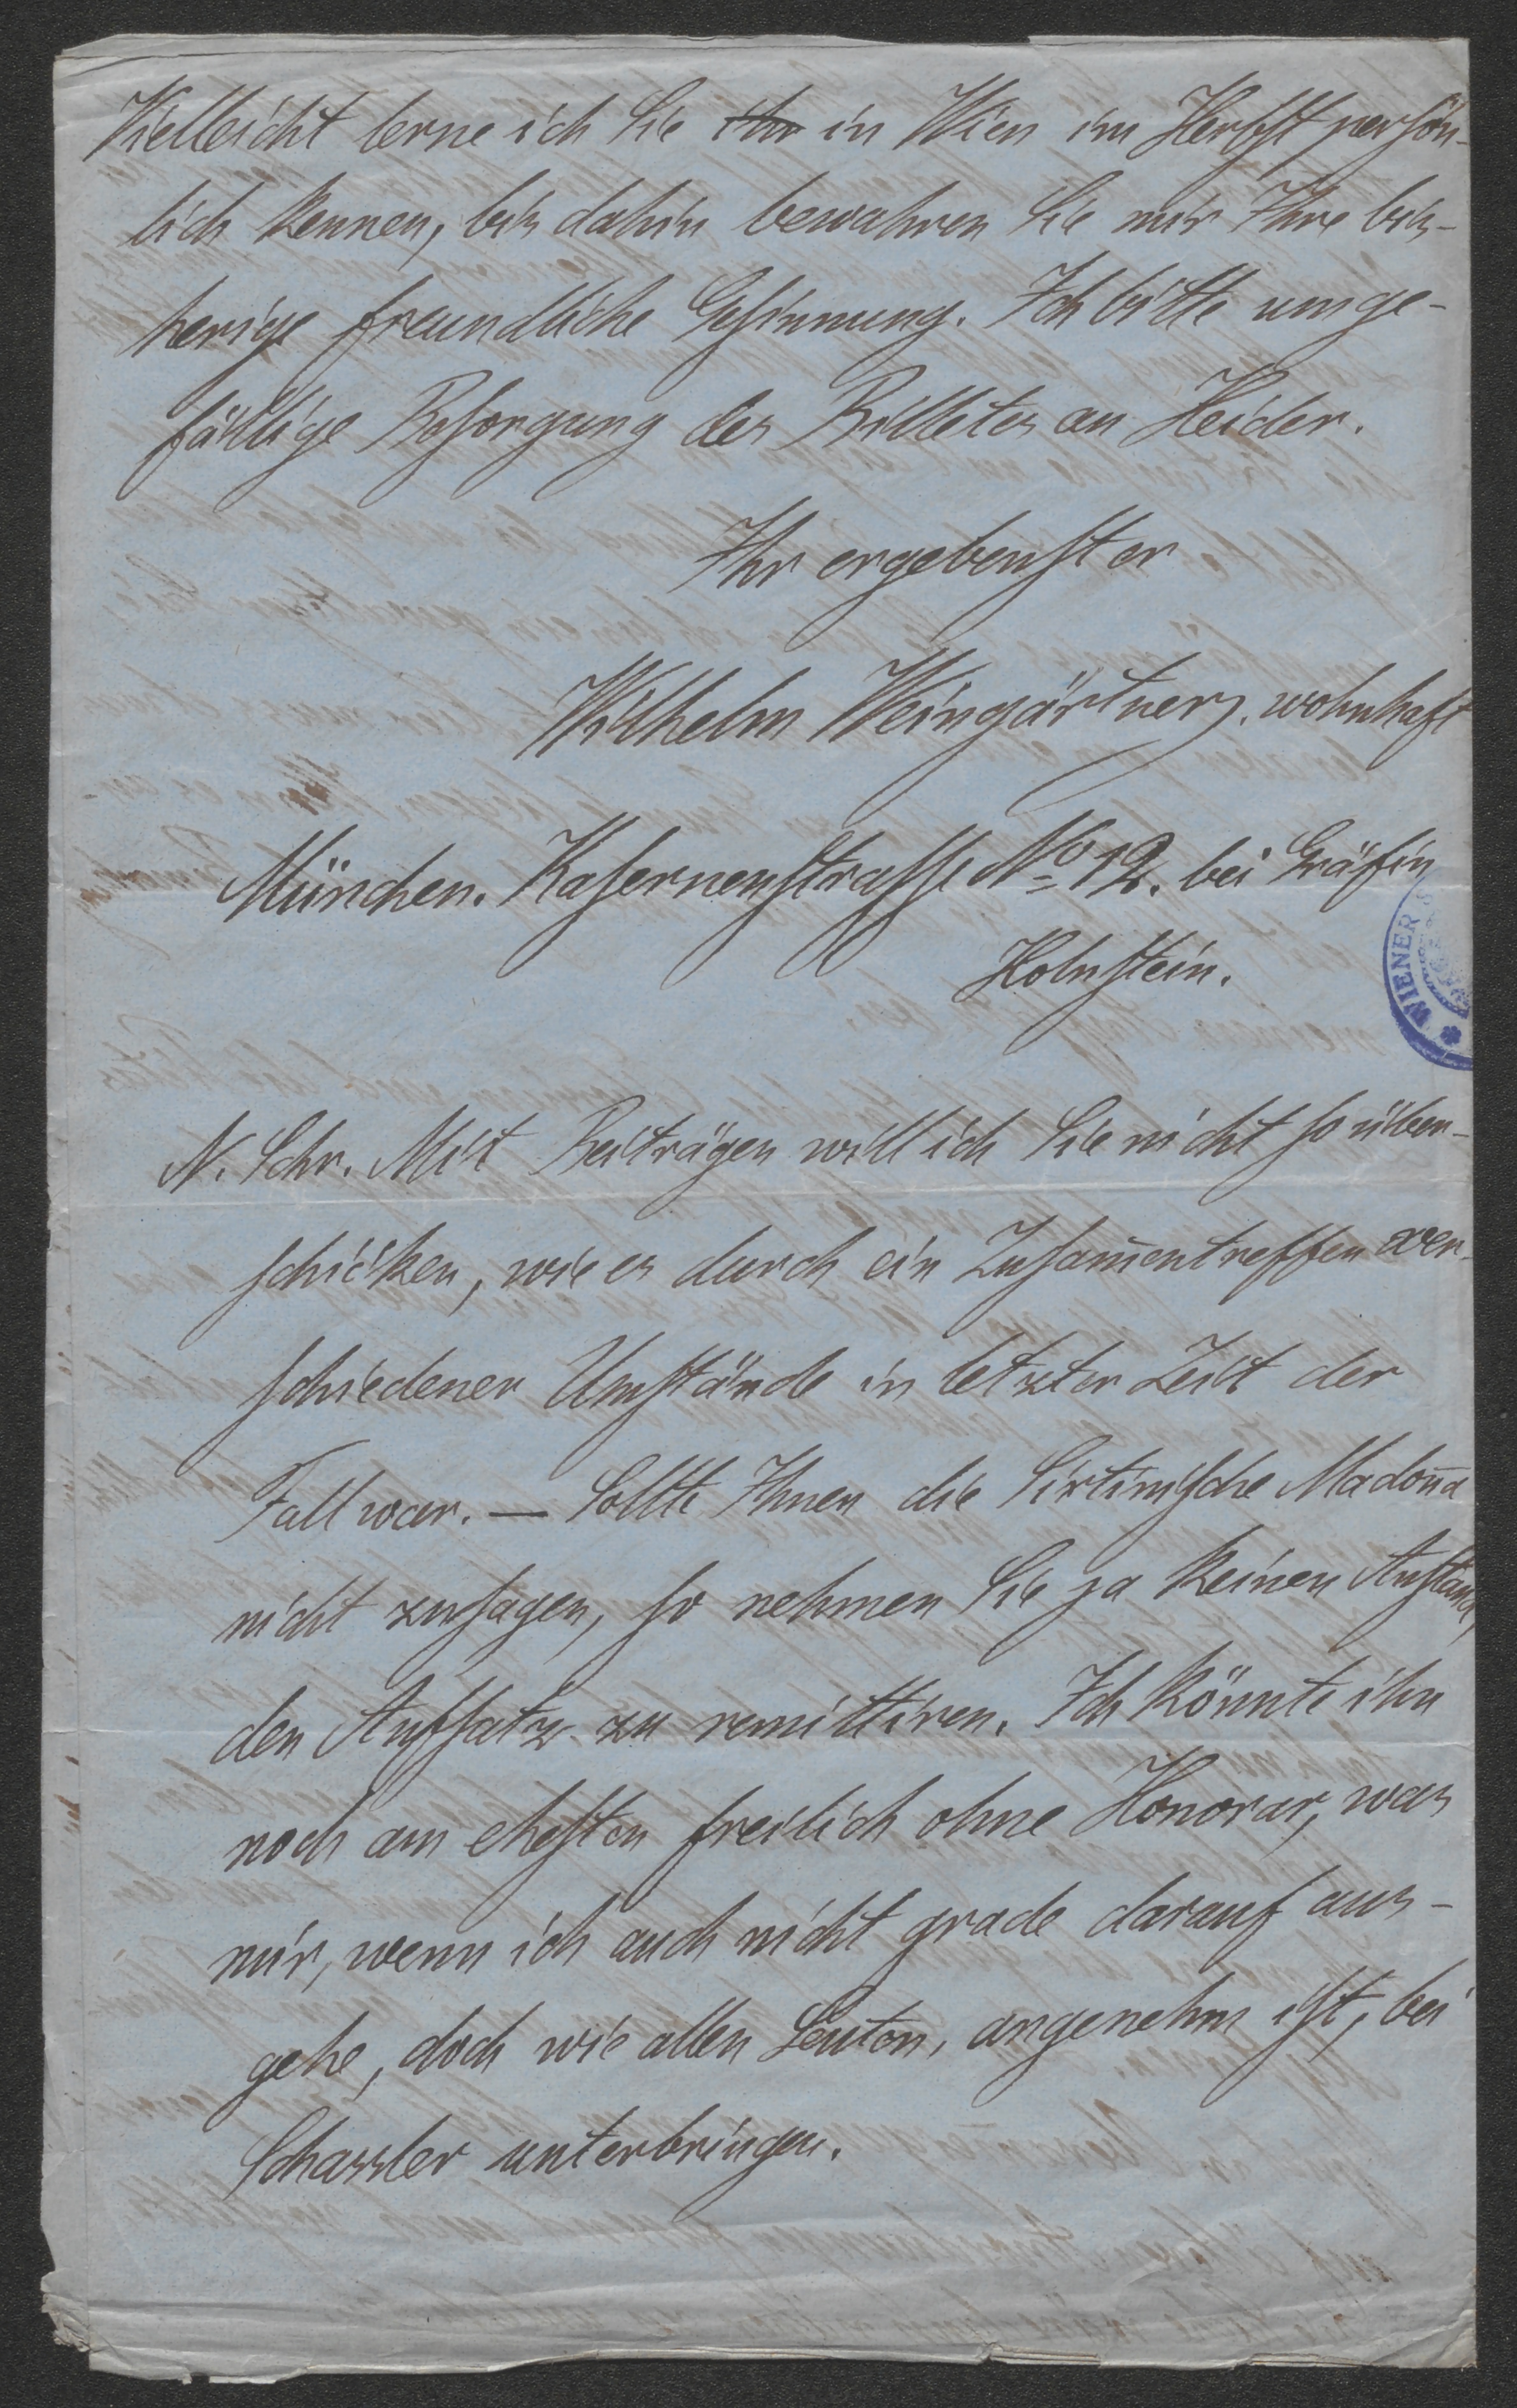 Vielleicht lerne ich Sie ihr in Wien im Herbst persön-
lich kennen, bis dahin bewahren Sie mir Ihre bis-
herige freundliche Gesinnung. Ich bitte um ge-
fällige Besorgung des Billetes an Heider.
Ihr ergebenster
Wilhelm Weingärtner, wohnhaft
München. Kasernenstrasse No 12. bei Gräfin
Holnstein.
WIENER
N. Schr. Mit Beiträgen will ich Sie nicht so über-
schicken, wie es durch ein Zusam̅entreffen ver-
schiedener Umstände in letzter Zeit der
Fall war. — Sollte Ihnen die Sixtinische Madon̅a
nicht zusagen, so nehmen Sie ja keinen Anstand,
den Aufsatz zu remittiren. Ich könnte ihn
noch am ehesten freilich ohne Honorar, was
mir, wenn ich auch nicht grade darauf aus-
gehe, doch wie allen Leuten, angenehm ist, bei
Schassler unterbringen.